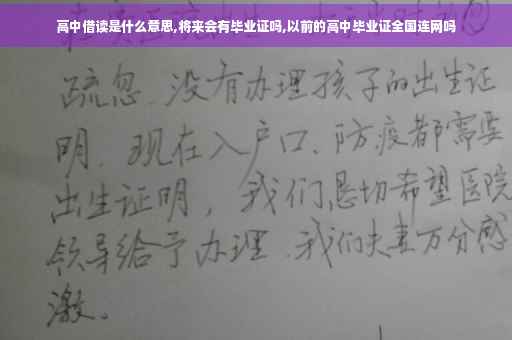 高中借读是什么意思,将来会有毕业证吗,以前的高中毕业证全国连网吗
疏忽、没有办理孩子的出生证
明、现在入户口、防疫都需要
出生证明，我们恳切希望医院
领导给予办理、我们夫妻万分感
激。